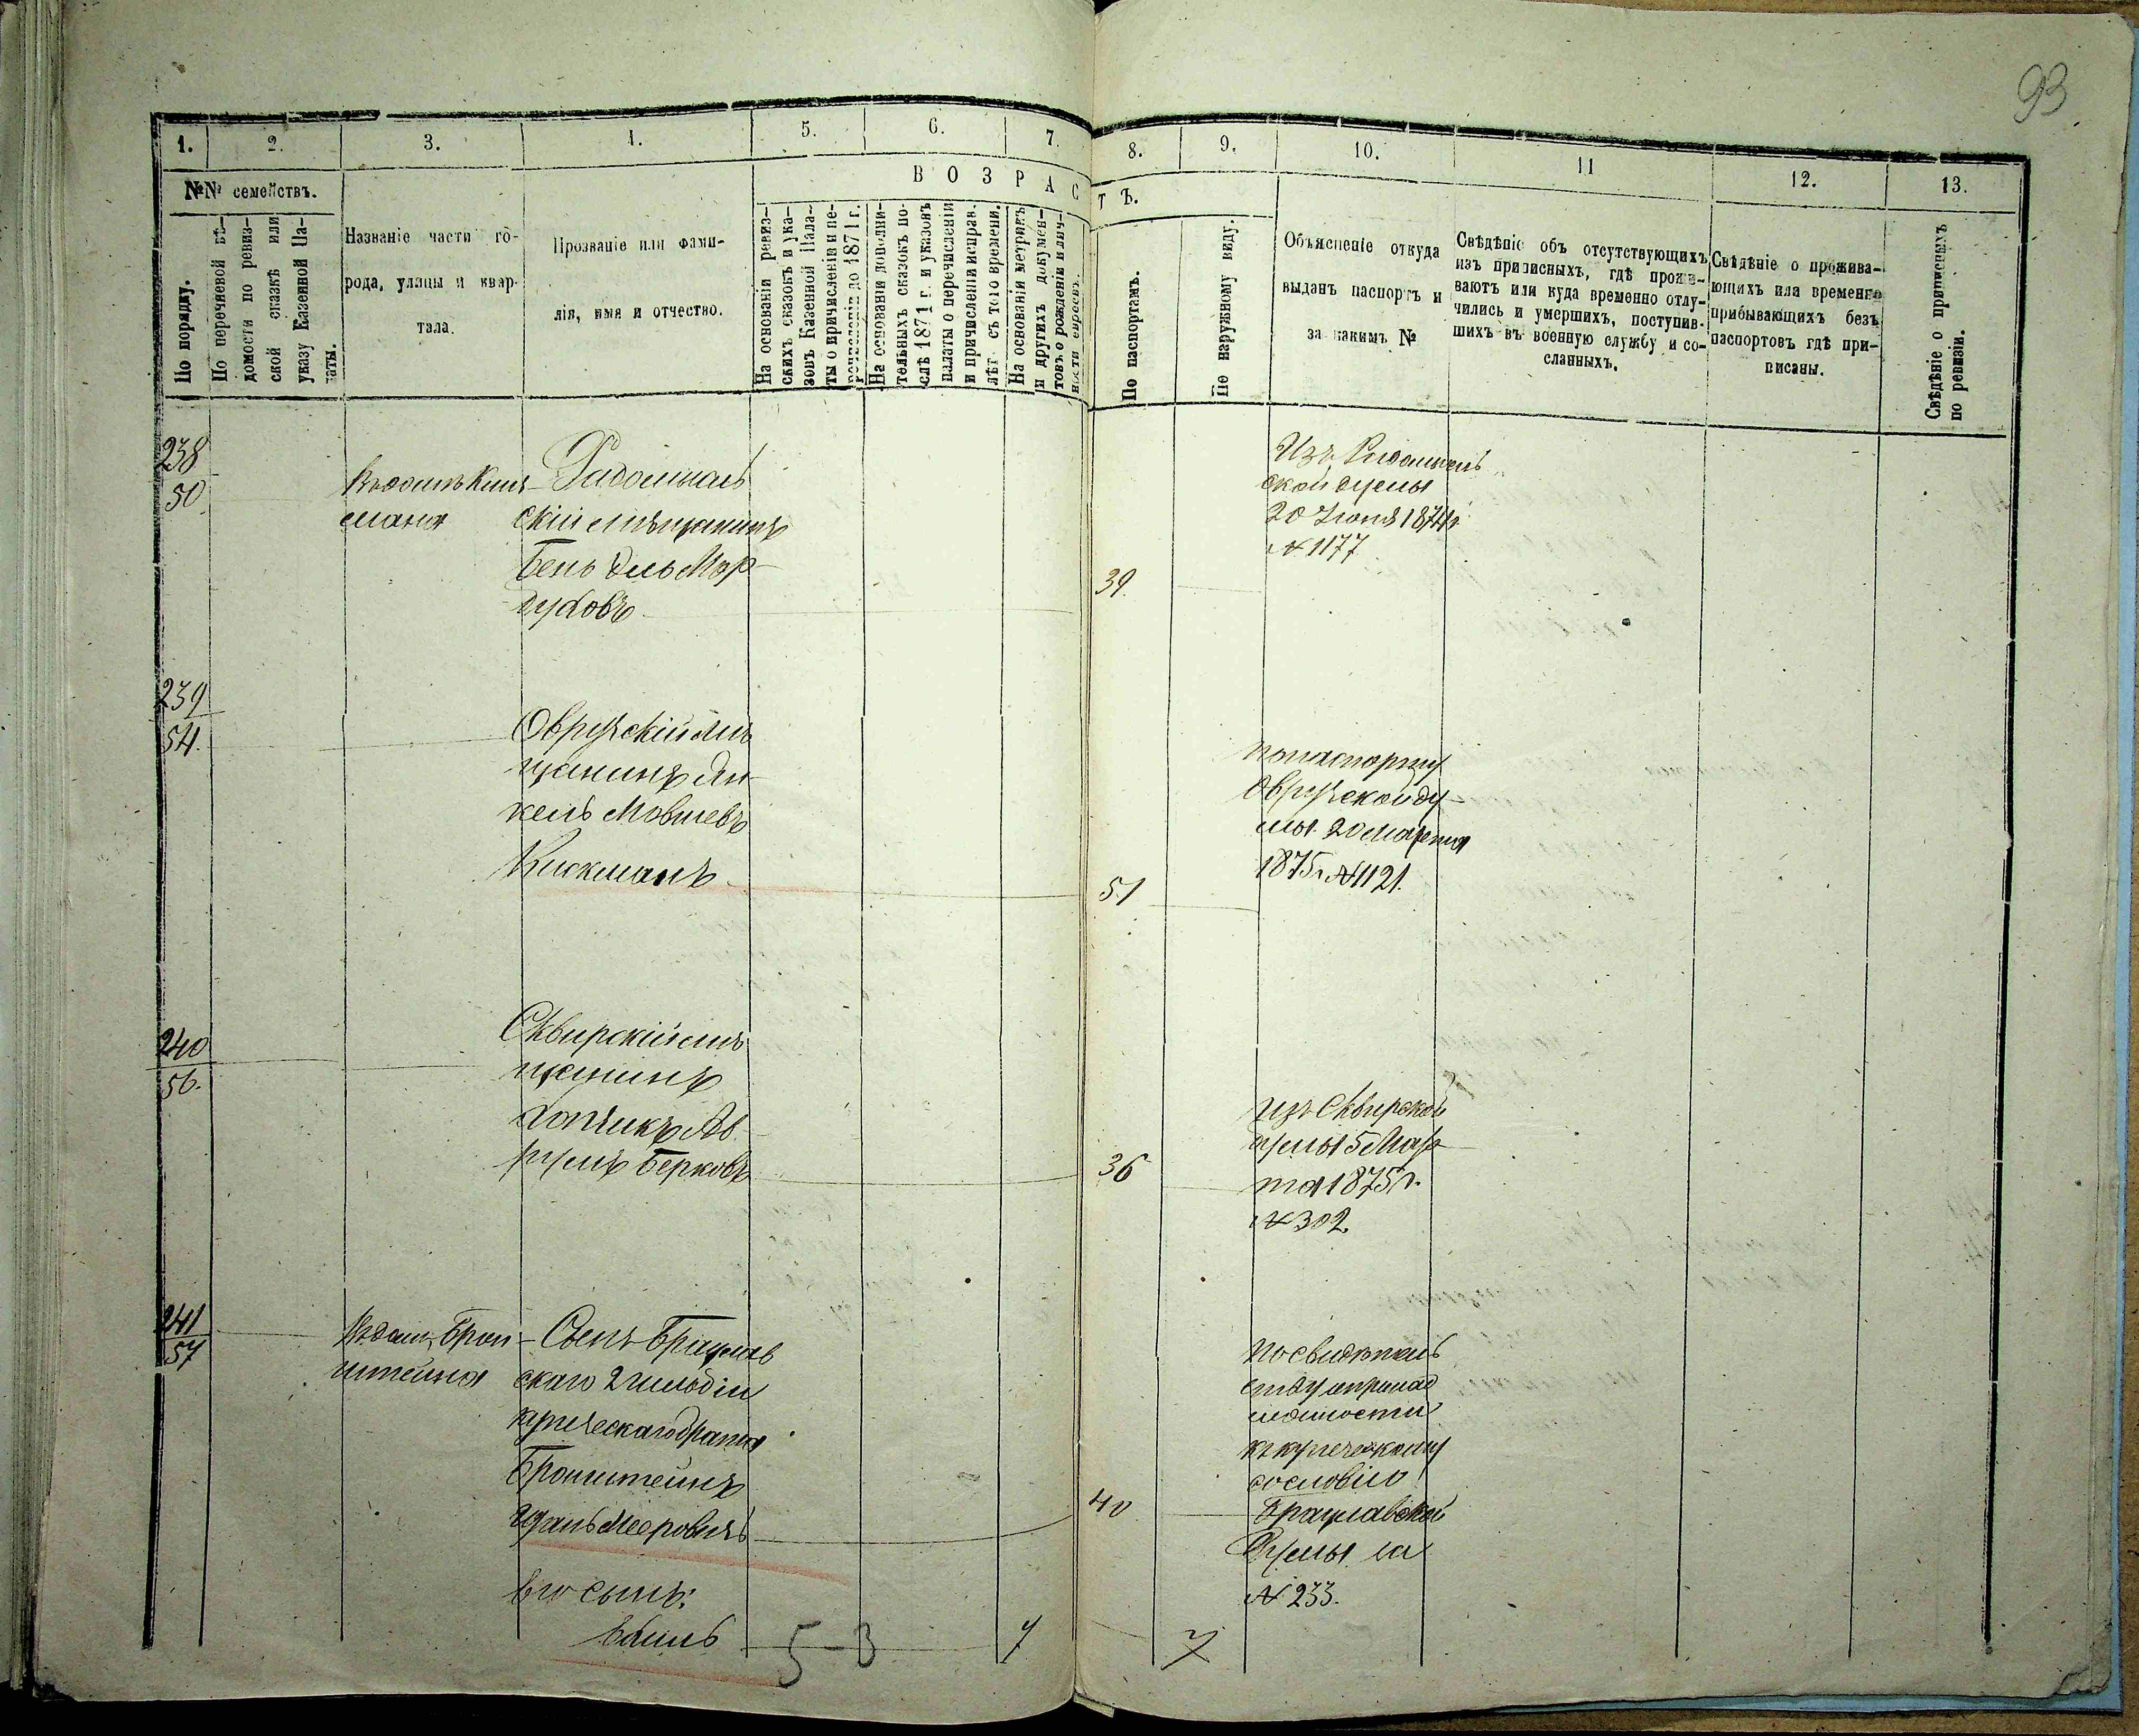 93
1. 2. 3. 4. 5. 6. 7. 8. 9. 10. 11 12. 13.
№№ семействъ.
По порядку.
По перечневой вѣ-
домости по ревиз-
ской сказкѣ или
указу Казенной Па-
латы.
Названіе части го-
рода, улицы и квар-
тала.
Прозваніе или фами-
лія, имя и отчество.
ВОЗРАСТЪ.
На основаніи ревиз-
скихъ сказокъ и ука-
зовъ Казенной Пала-
ты о причисленіи и пе-
речисленіи до 1871 г.
На основаніи дополни-
тельныхъ сказокъ по-
слѣ 1871 г. и указовъ
палаты о перечисленіи
и причисленіи и исправ.
лѣт. съ того времени.
На основаніи метрикъ
и другихъ докумен-
товъ о рожденіи и лич-
ности евреевъ.
По паспортамъ.
По наружному виду.
Объясненіе откуда
выданъ паспортъ и
за какимъ №
Свѣдѣніе объ отсутствующихъ
изъ приписныхъ, гдѣ прожи-
ваютъ или куда временно отлу-
чились и умершихъ, поступив-
шихъ въ военную службу и со-
сланныхъ.
Свѣдѣніе о прожива-
ющихъ или временно
прибывающихъ безъ
паспортовъ гдѣ при-
писаны.
Свѣдѣніе о приписныхъ
по ревизіи.
238
50
Въ домѣ Киш-
мана
Радомысль
скій мѣщанинъ
Бень
Мор-
духовъ
39.
Изъ Радомысль
ской думы
20 Іюня 1874 г.
№ 1177
239
54.
Овручскій мѣ
щанинъ Ян-
кель Мовшевъ
Кискманъ
51
По паспорту
Овручской ду-
мы 20 марта
1875 г. № 1121.
240
56.
Сквирскій мѣ
щанинъ
Копчикъ Ав-
румъ Берковъ
36
Изъ Сквирской
думы 5 Мар-
та 1875 г.
№ 302.
241
57
Въ дом. Брон-
штейна
Сынъ Брацлав
скаго 2 гильдіи
купеческаго брата
Бронштейнъ
Мееровичъ
40
По свидѣтель
ству
къ купеческому
сословію
Брацлавской
Думы за
№ 233.
Его сынъ:
5-3
7
7